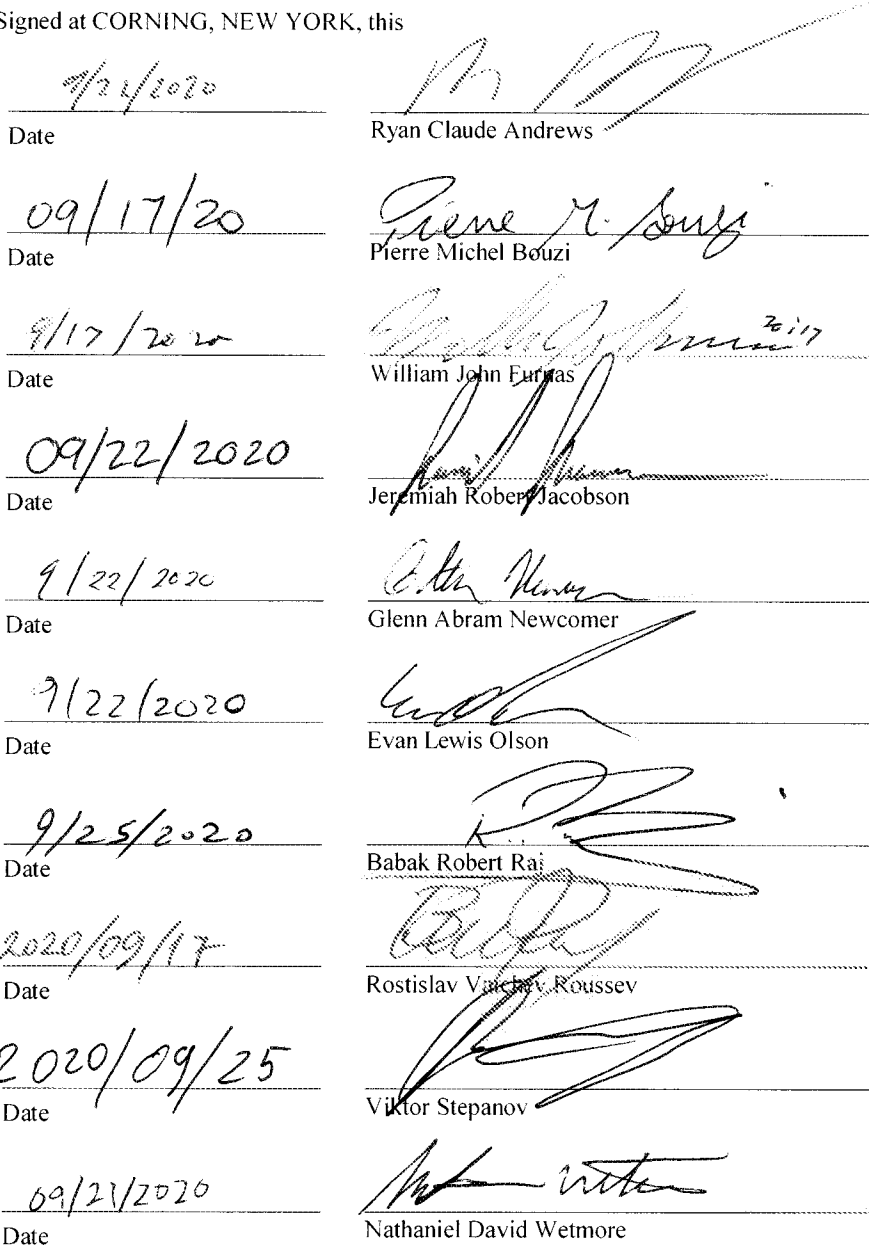 Signed at CORNING, NEW YORK, this
9/22/2020
Date
Ryan Claude Andrews
09/17/20
Pierre M. Bouzi
Date
Pierre Michel Bouzi
9/17/2020
Date
William John Furnas
09/22/2020
Date
Jeremiah Robert Jacobson
9/22/2020
Date
Glenn Abram Newcomer
9/22/2020
Date
Evan Lewis Olson
9/25/2020
Date
Babak Robert Raj
2020/09/17
Date
Rostislav Valchev Roussev
2020/09/25
Date
Viktor Stepanov
09/21/2020
Date
Nathaniel David Wetmore